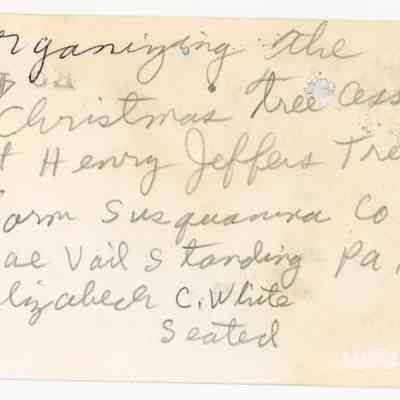 organizing the
Christmas tree Ass
at Henry Jeffers Tree
Farm Susquanna Co.
ae Vail Standing Pa.
Elizabeth C. White
Seated